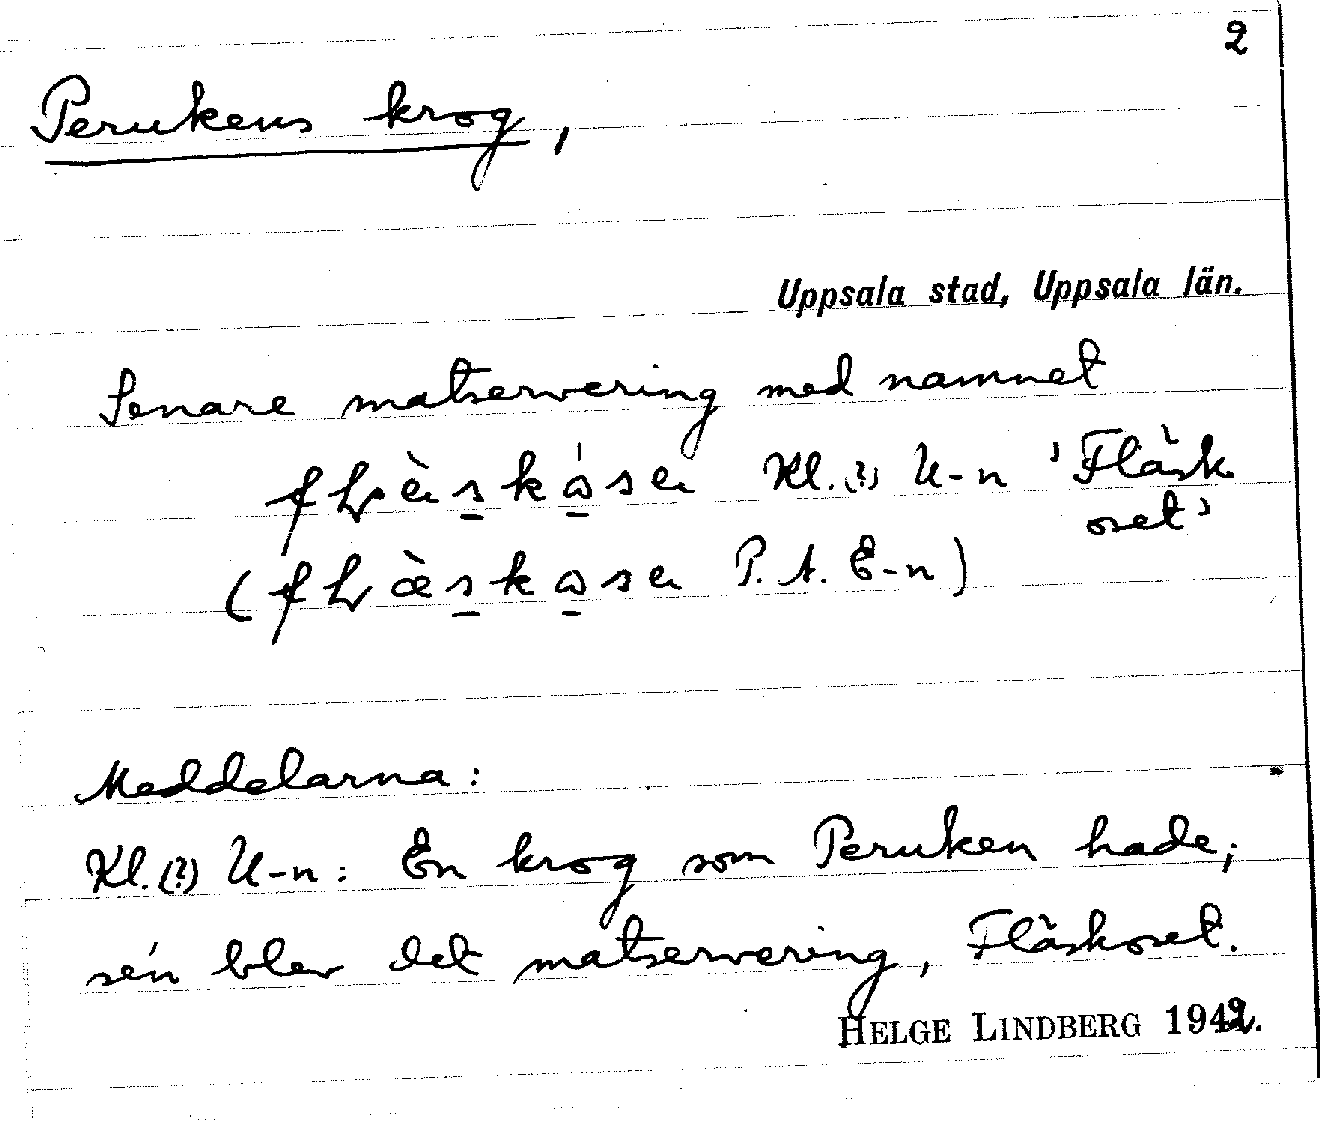 2
Perukens krog,
Uppsala stad, Uppsala län.
Senare matservering med namnet
Kl.(?) U-n 'Fläsk
oset'
P.A. E-n)
Meddelarna:
Kl.(?) U-n: En krog som Peruken hade;
se'n blev det matservering, Fläskoset.
HELGE LINDBERG 1942.